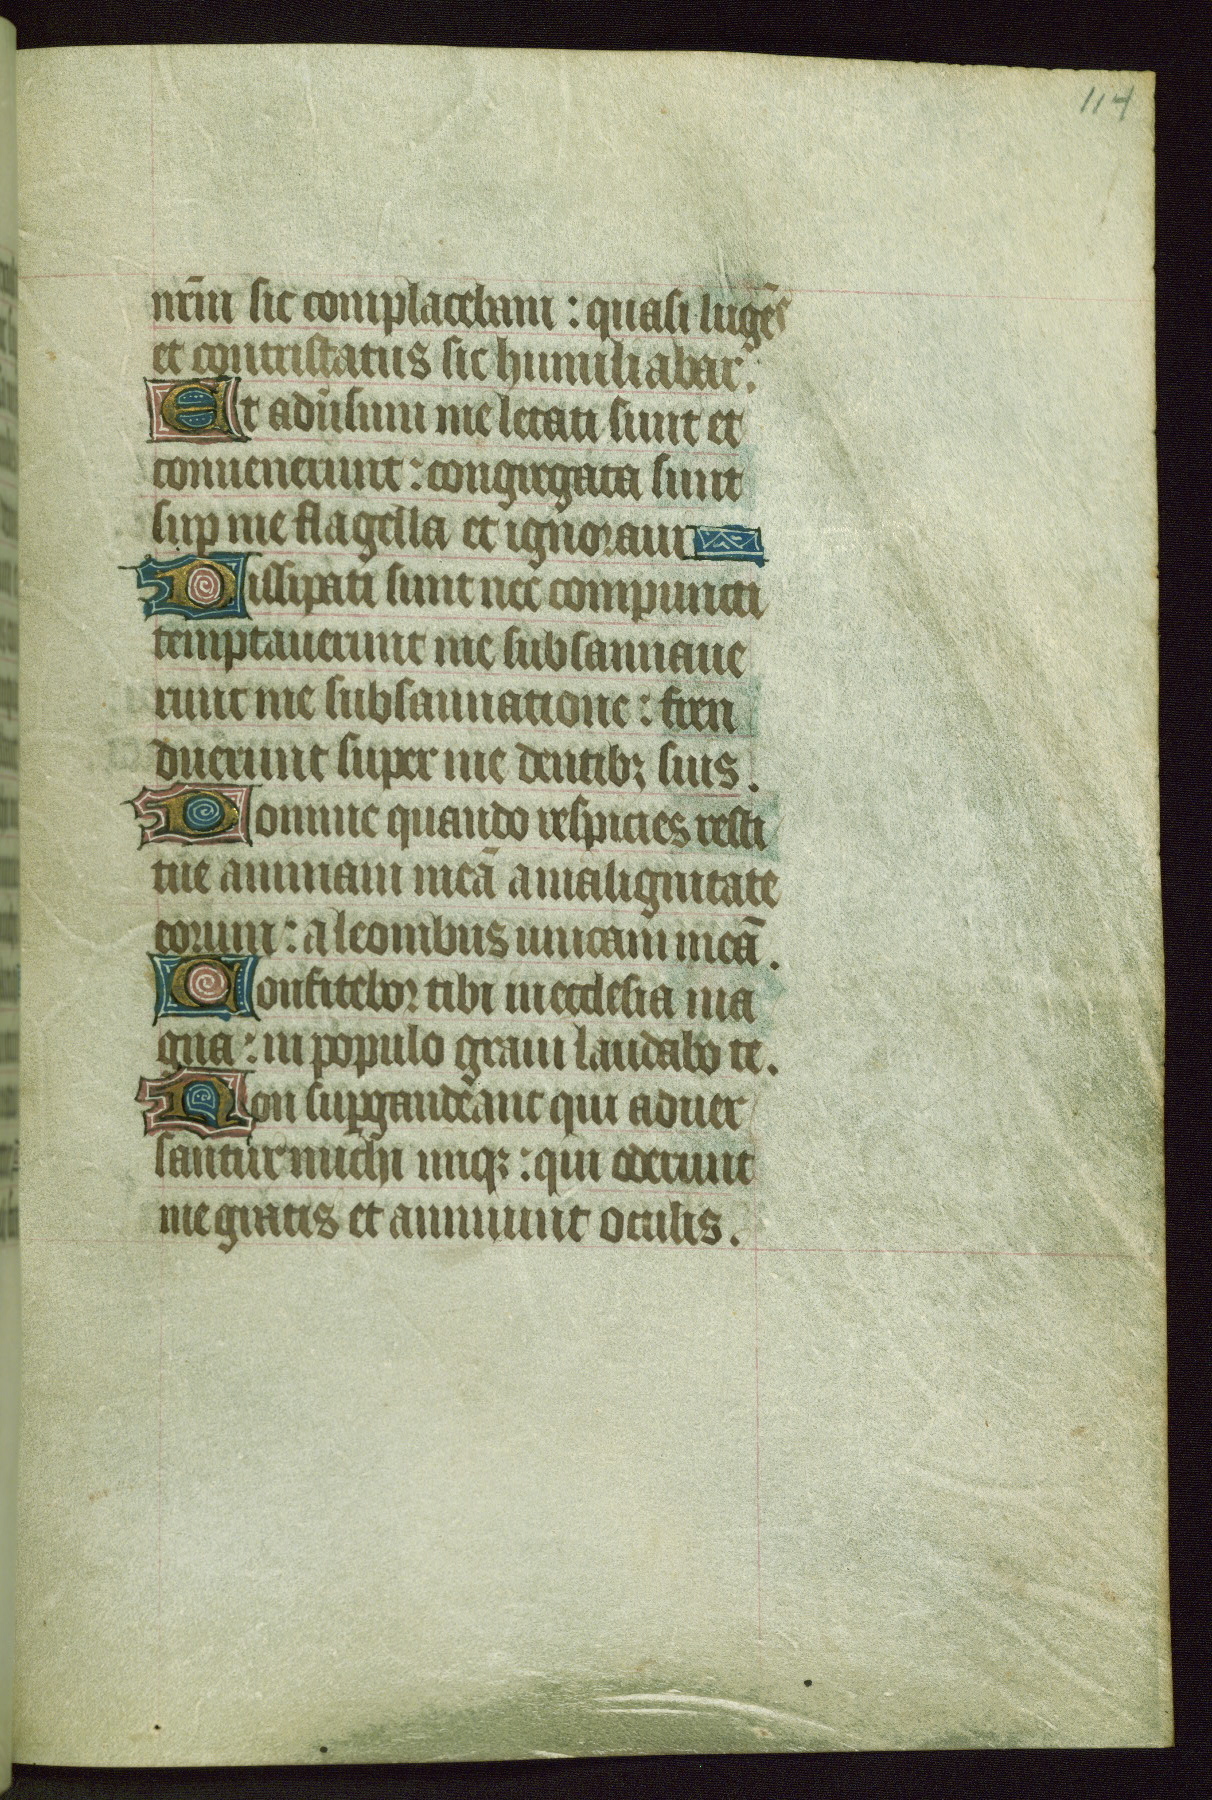 114
nr̄m sic complacebam : quasi lugēs
et contristatus sic humiliabar.
Et aduīsum me letati sunt et
conuenerunt : congregata sunt
sup me flagella et ignoraui
Dissipati sunt nec compuncti
temptauerunt me subsannaue
runt me subsannatione : fren
duerunt super me dentibꝫ suis.
Domine quando respicies resti
tue animam meā amalignitate
eorum : a leonibus unicam meā.
Confitebor tibi inecclesia ma
gna : in populo graui laudabo te.
Non suꝑgaudeant qui aduer
santur michi iniqꝫ : qui oderunt
me gratis et annuunt oculis.